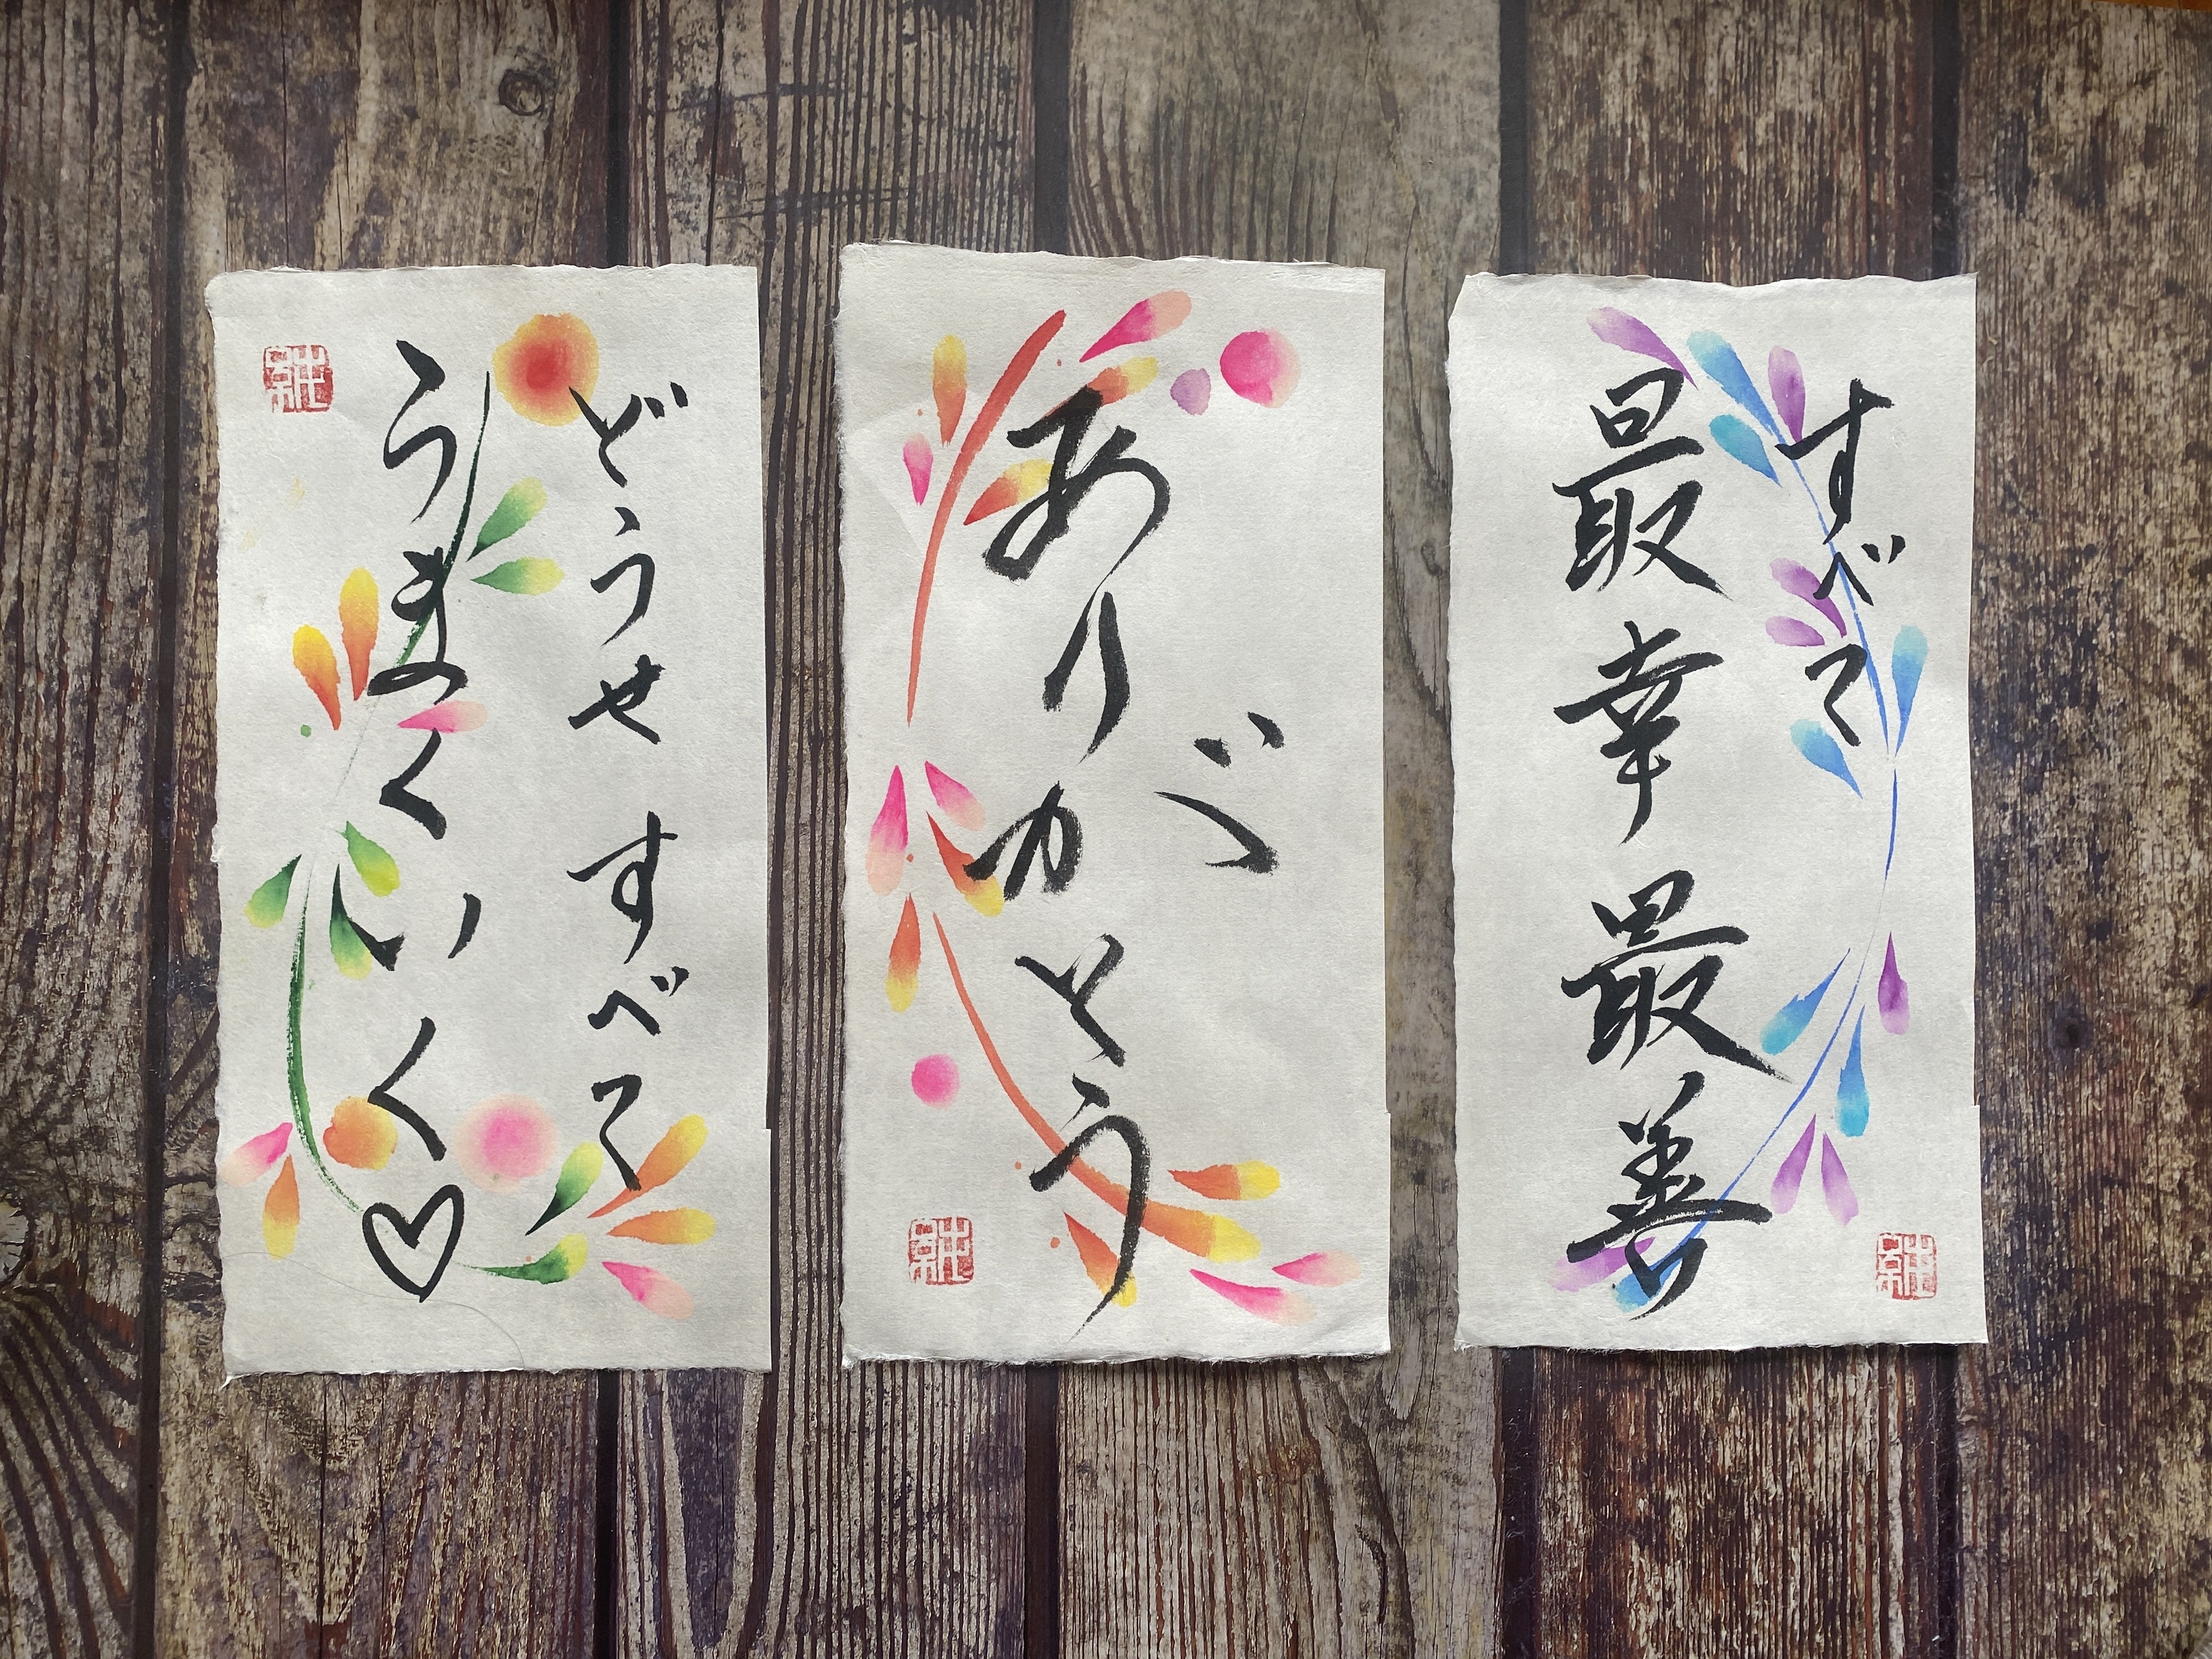 どうせすべて
うまくいく♡
ありがとう
すべて
最幸最善